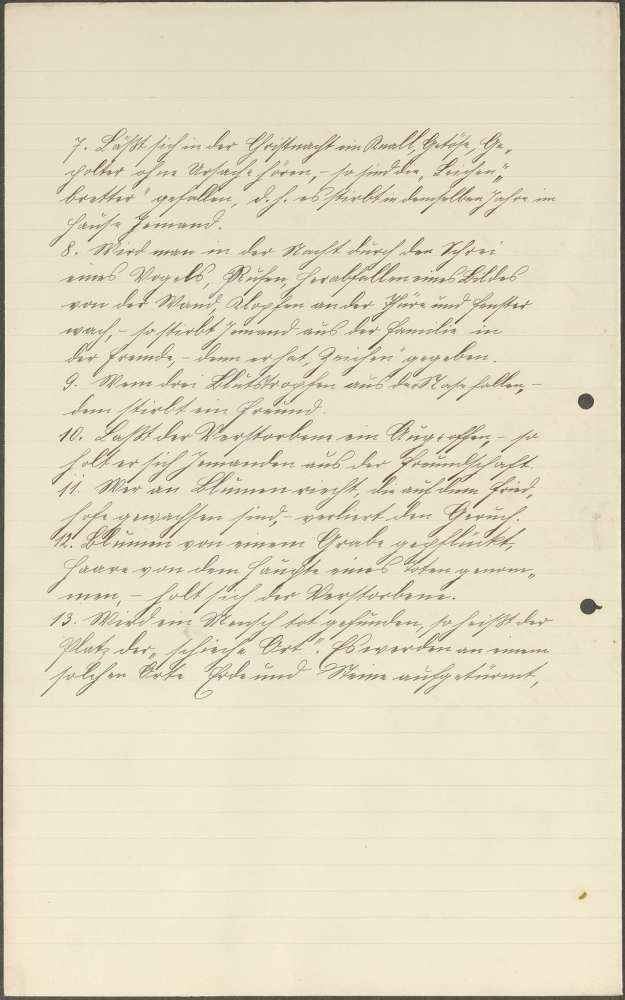 7. Läßt sich in der Christnacht ein Knall, Getöse, Ge„
polter ohne Ursache hören, – so sind die „Leichen„
bretter“ gefallen, d. h. es stirbt in demselben Jahre im
Hause Jemand.
8. Wird man in der Nacht durch den Schrei
eines Vogels, Rufen, Herabfallen eines Bildes
von der Wand, Klopfen an der Thüre und Fenster
wach, – so stirbt Jemand aus der Familie in
der Fremde, – denn er hat „Zeichen“ gegeben.
9. Wem drei Blutstropfen aus der Nase fallen, –
dem stirbt ein Freund.
10. Läßt der Verstorbene ein Aug' offen – so
holt er sich Jemanden aus der Freundschaft.
11. Wer an Blumen riecht, die auf dem Fried„
hofe gewachsen sind, – verliert den Geruch.
12. Blumen von einem Grabe gepflückt,
Haare von dem Haupte eines Toten genom„
men, – holt sich der Verstorbene.
13. Wird ein Mensch tot gefunden, so heißt der
Platz der „schieche Ort“. Es werden an einem
solchen Orte Erde und Steine aufgetürmt,